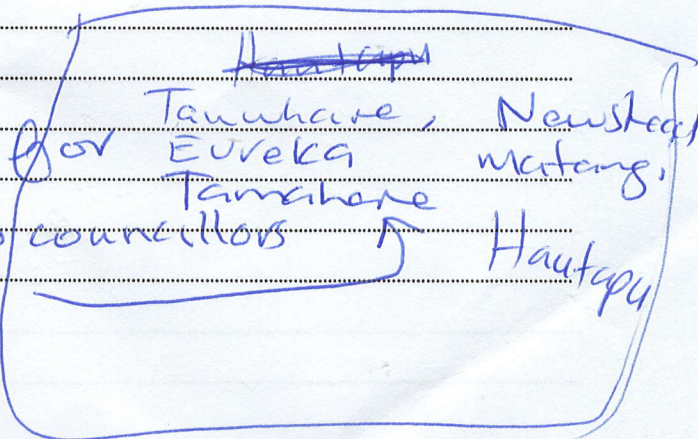 Hautapu
Tauwhare, Newstead
for Eureka Matang.
Tamahere
councillors
Hautapu